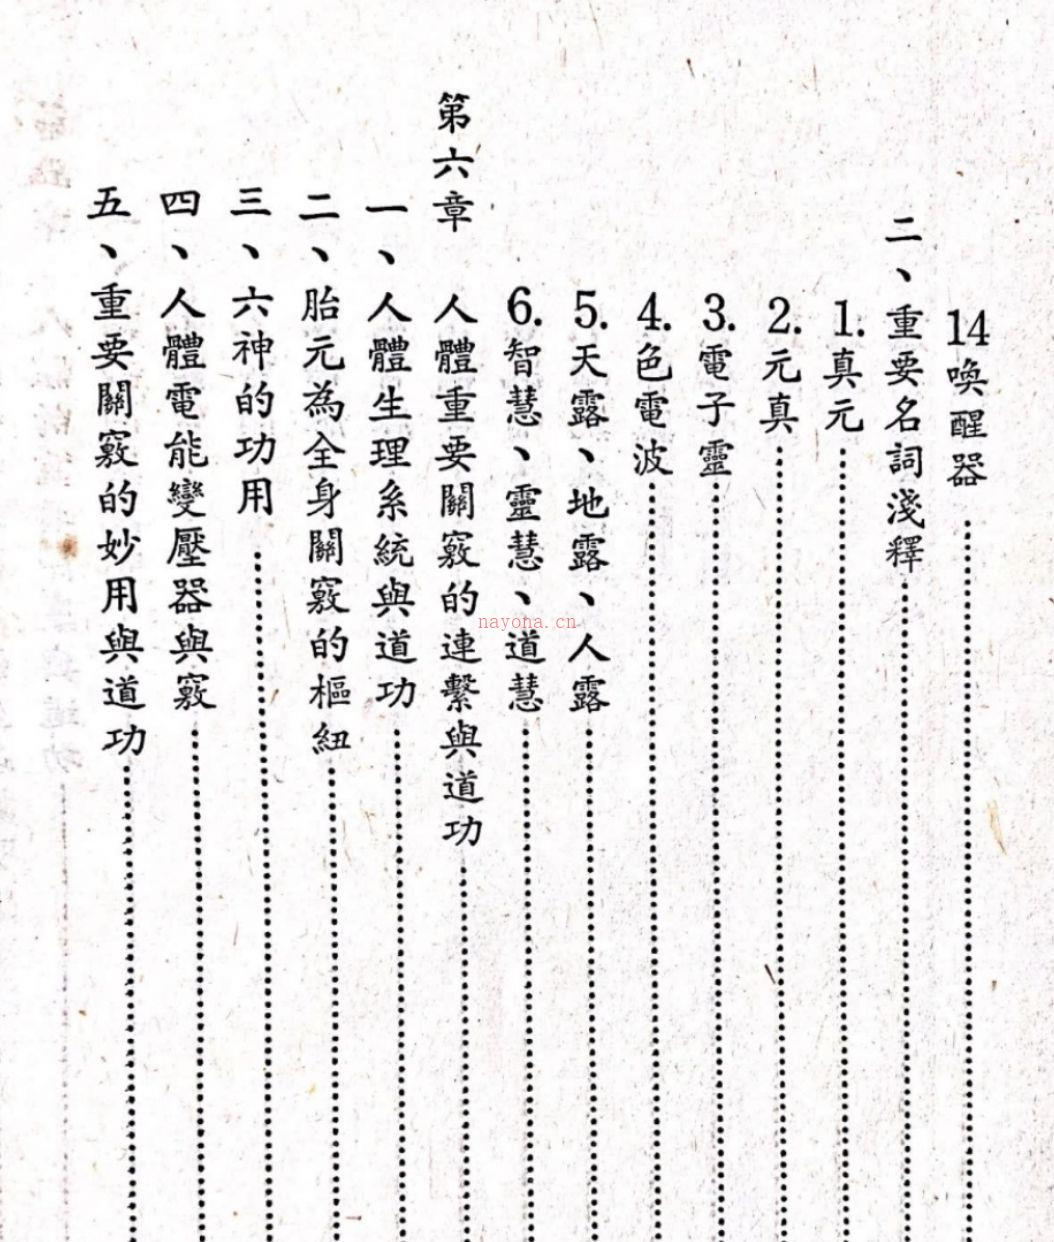 14喚醒器
二、重要名詞淺釋
1.真元
2.元真
3.電子靈
4.色電波
5.天露、地露、人露
6.智慧、靈慧、道慧
第六章 人體重要關竅的連繫與道功
一、人體生理系統與道功
二、胎元為全身關竅的樞紐
三、六神的功用
四、人體電能變壓器與竅
五、重要關竅的妙用與道功
nayona.cn